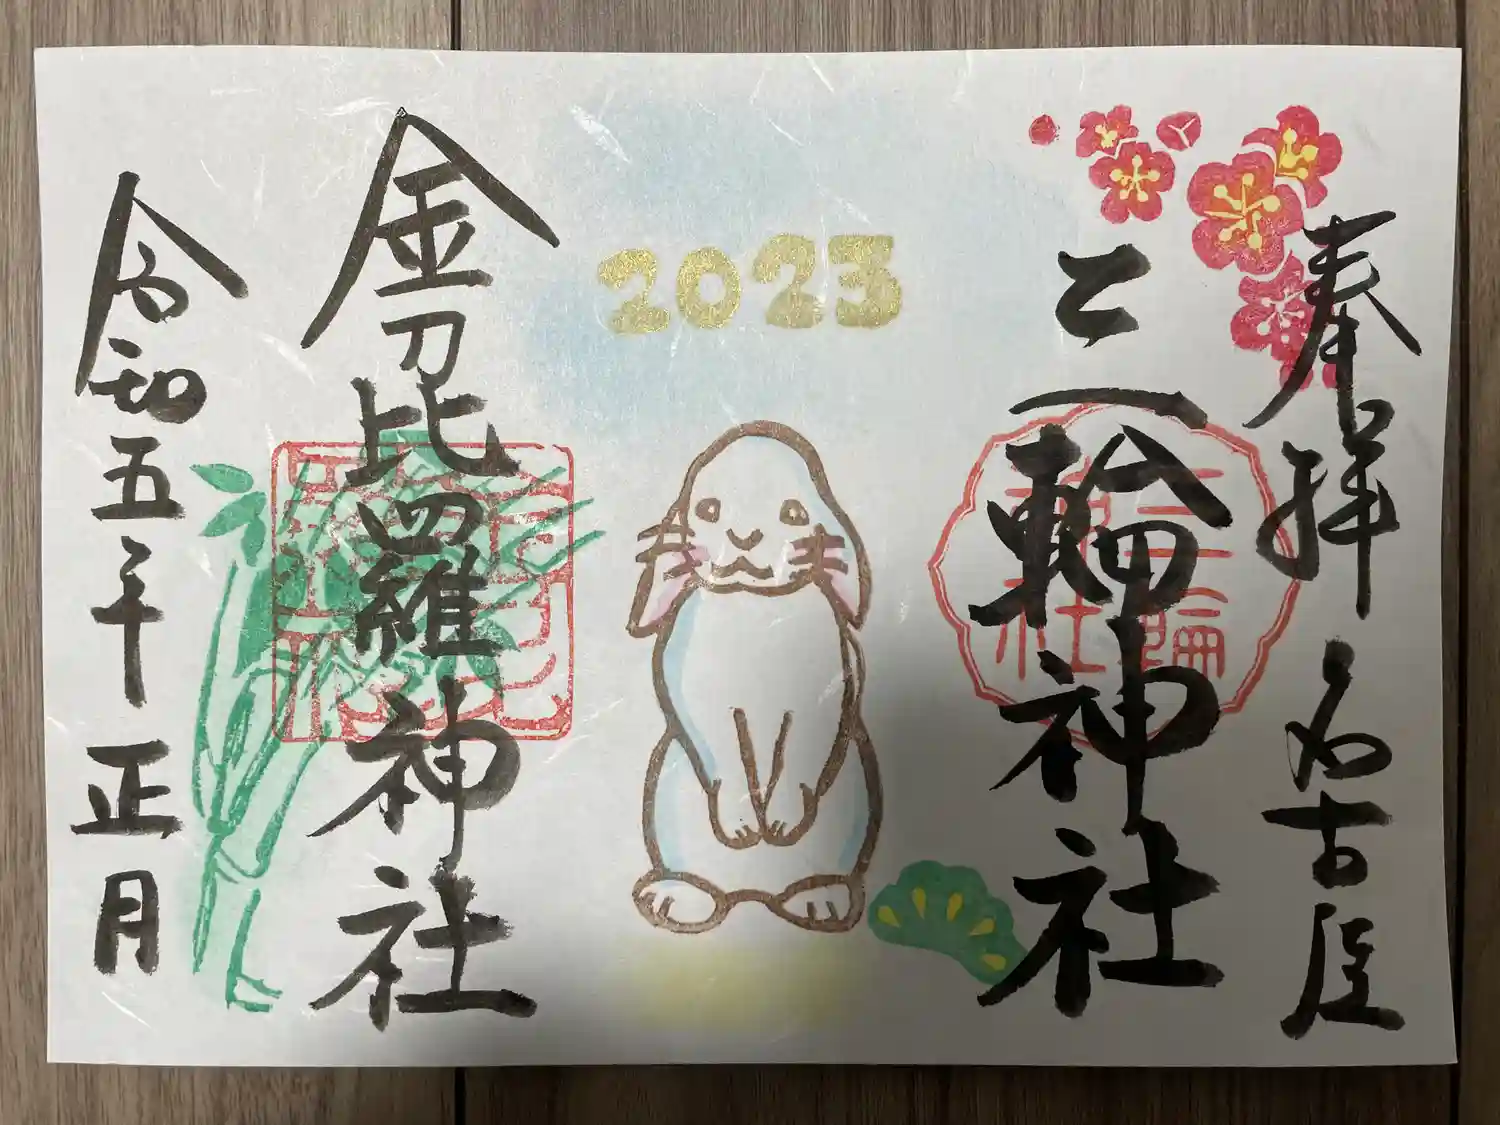 奉拝 名古屋
三輪神社
三輪
神社
2023
金刀比羅神社
令和五年 正月